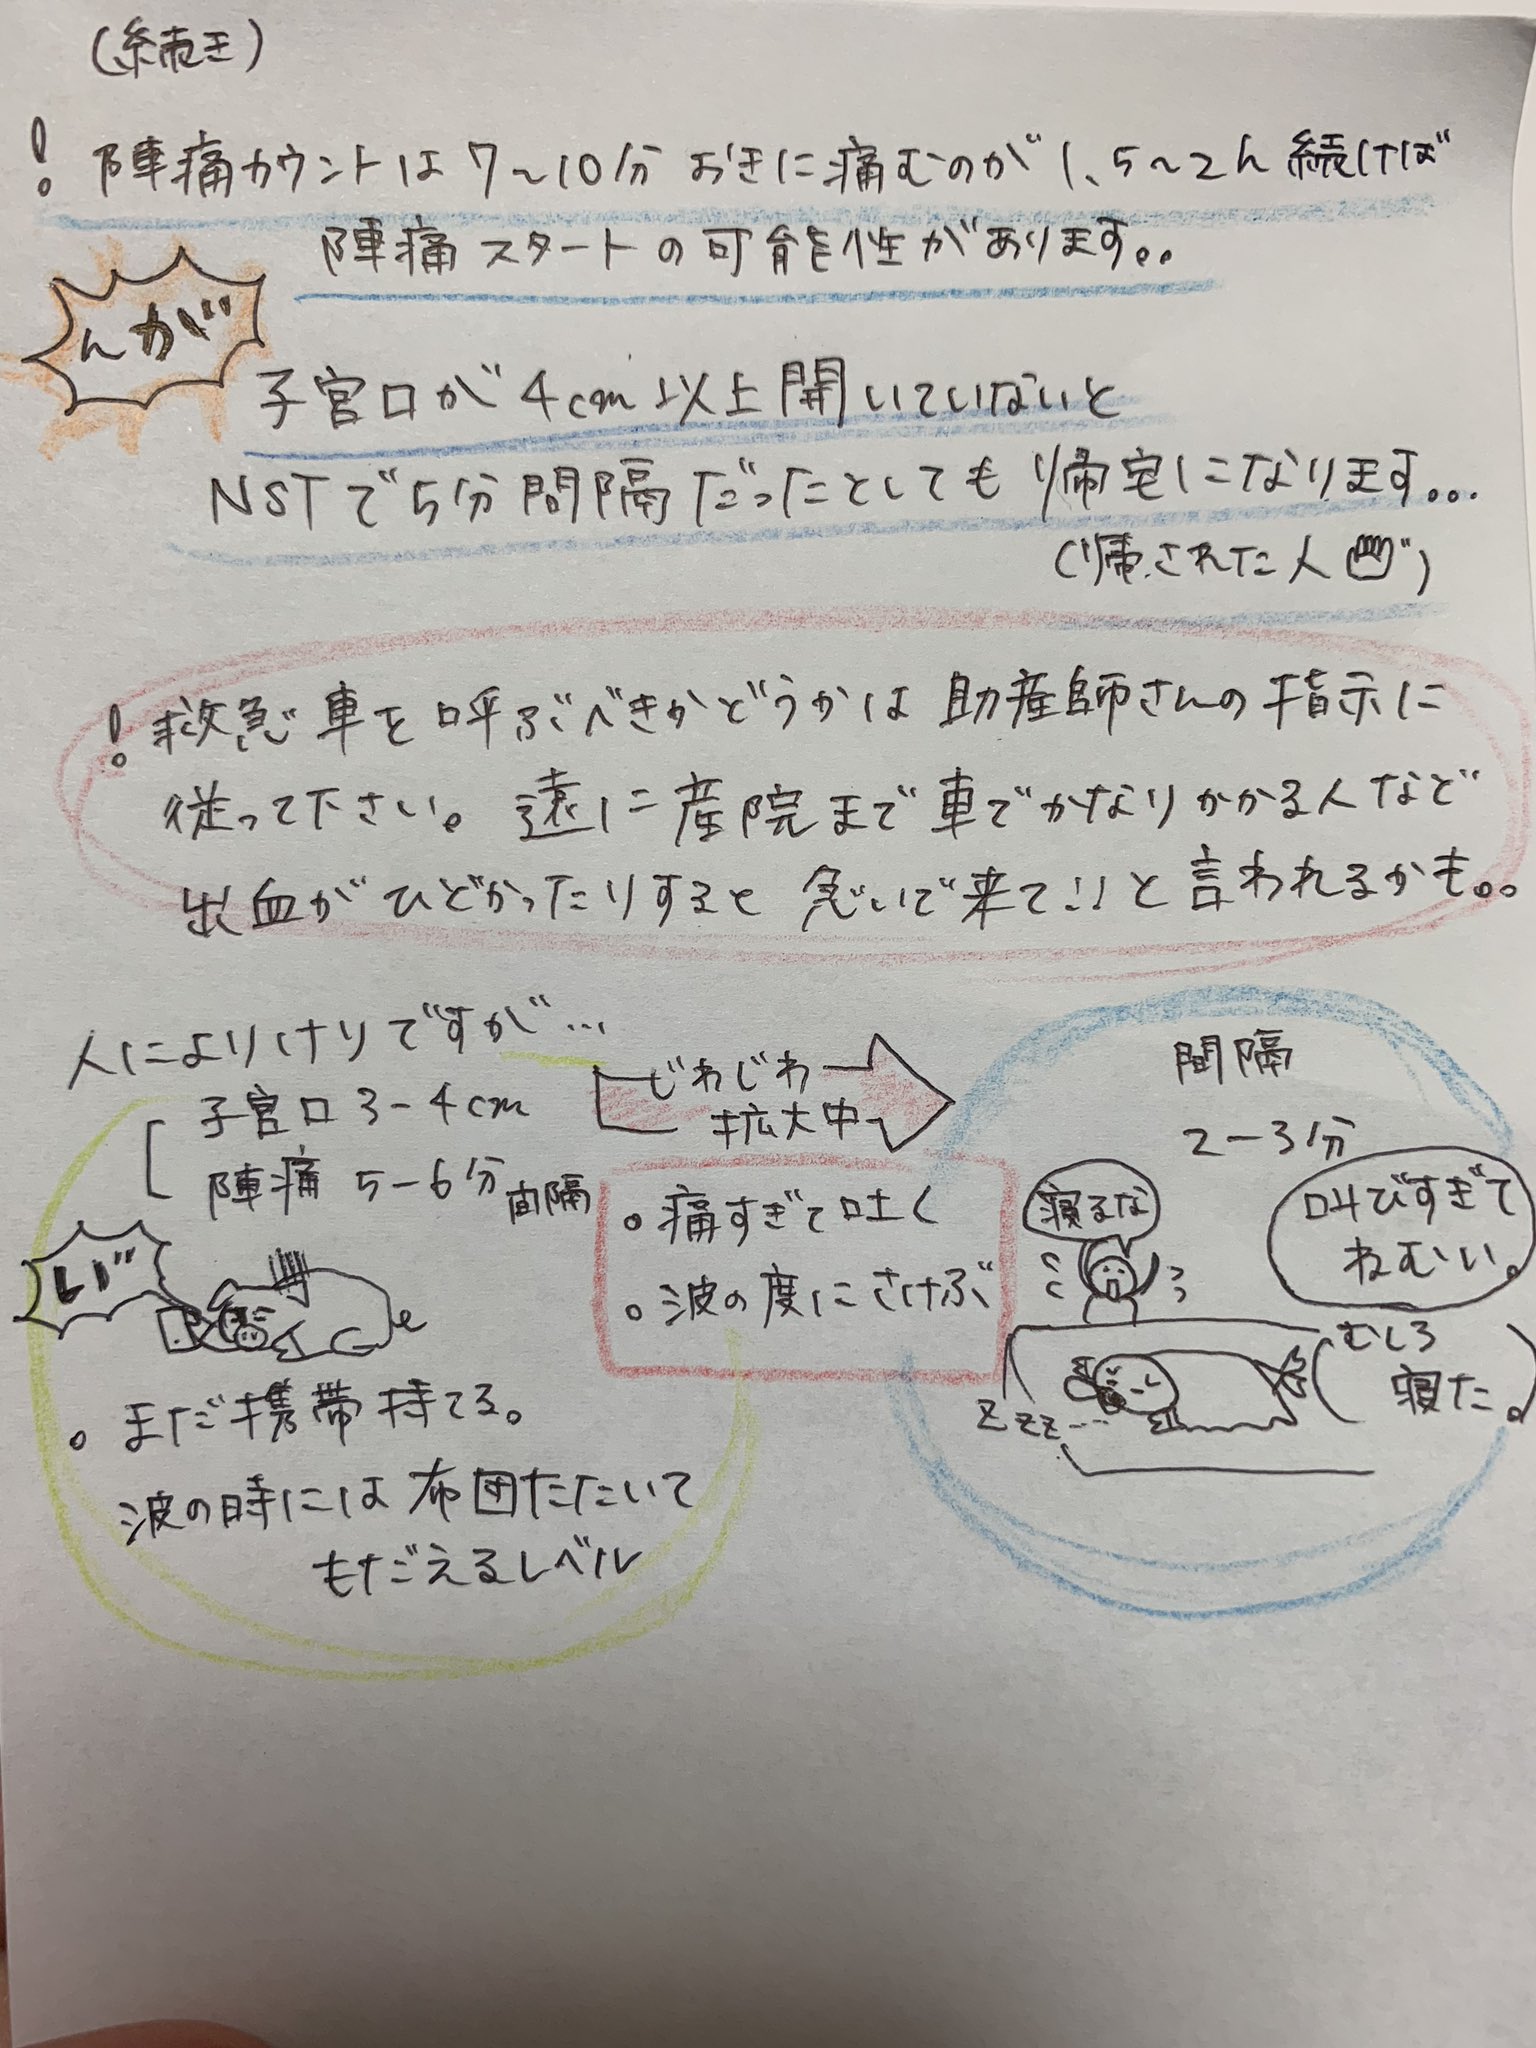 (続き)
! 陣痛カウントは7~10分おきに痛むのが1、5~2h続けば
陣痛スタートの可能性があります。。
んが
子宮口が4cm以上開いていないと
NSTで5分間隔だったとしても帰宅になります...
(帰された人)
! 救急車を呼ぶべきかどうかは助産師さんの指示に
従って下さい。遠に産院まで車でかなりかかる人など
出血がひどかったりすると急いで来て!!と言われるかも。。
人によりけりですが...
子宮口3-4cm
陣痛 5-6分間隔
じわじわ
拡大中
間隔
2-3分
・痛すぎて吐く
・波の度にさけぶ
寝るな
叫びすぎて
ねむい。
むしろ
寝た。
zzz...
・まだ携帯持てる。
波の時には布団たたいて
もだえるレベル